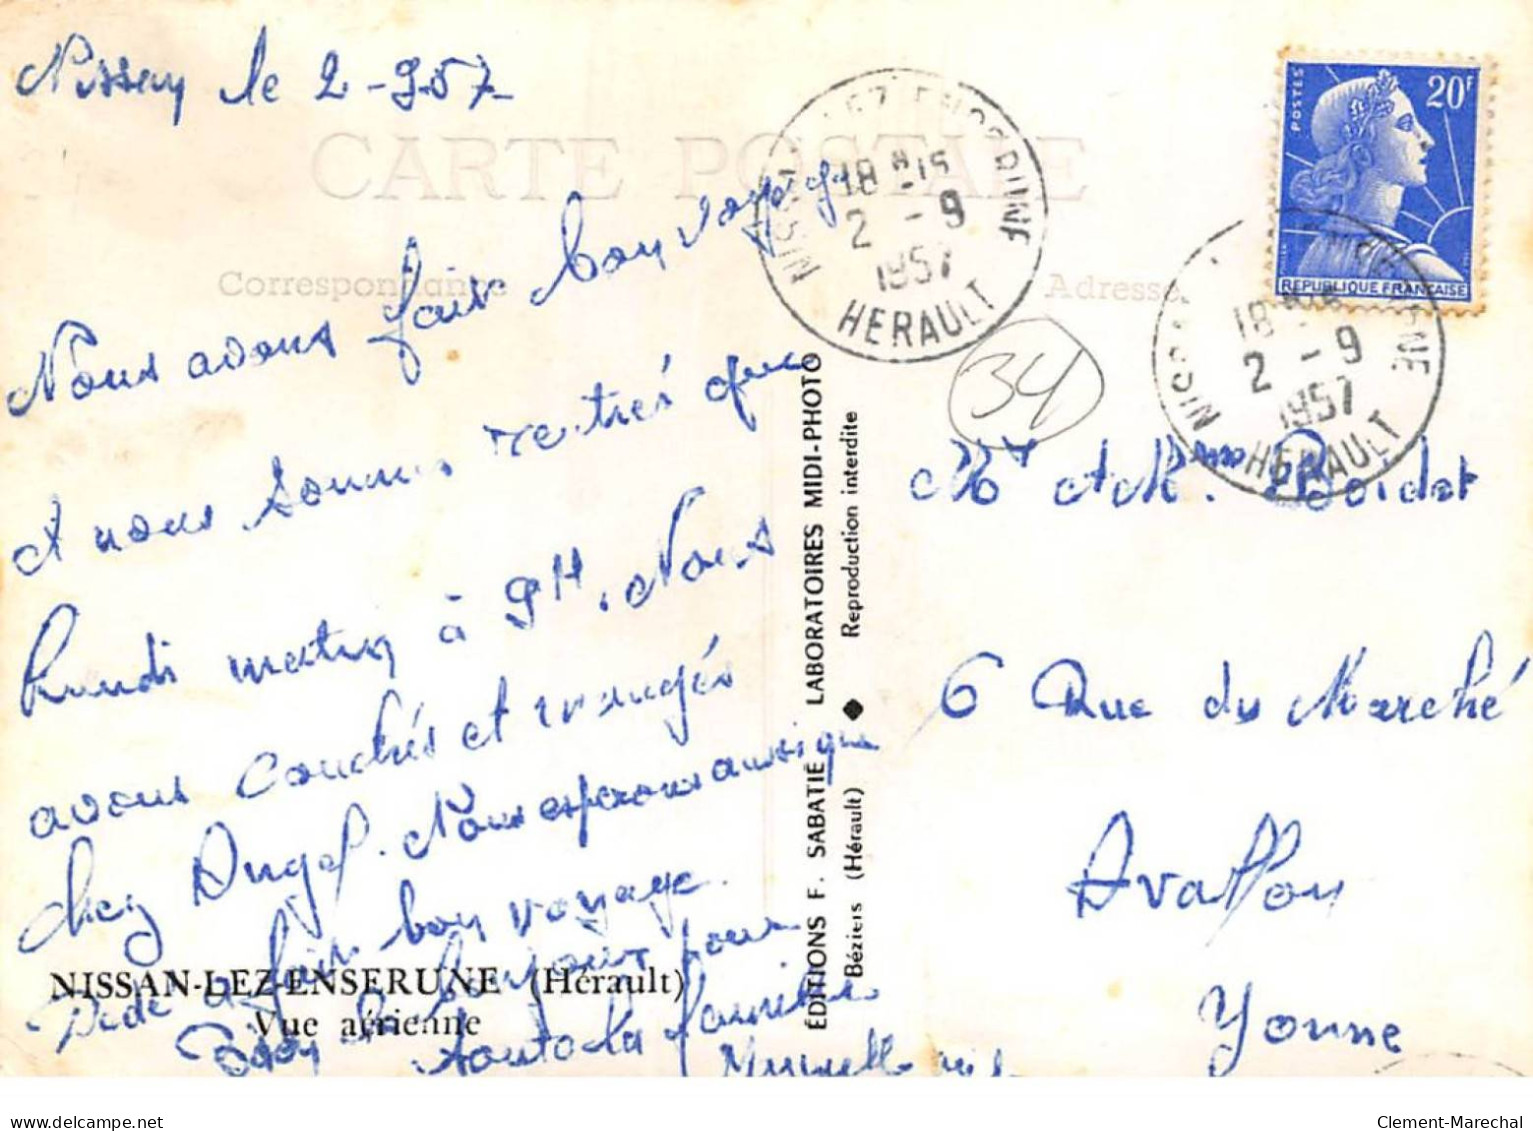 Nissan le 2-9-57
CARTE POSTALE
Correspondance
Adresse
Nous avons fait bon voyage
et nous sommes rentrés que
Lundi matin à 9H. Nous
avons couchés et mangés
chez Angel. Nous esperons aussi que
Dédé a fait bon voyage.
Bien le bonjour pour
toute la famille
NISSAN-LEZ-ENSERUNE (Hérault)
Vue aérienne
ÉDITIONS F. SABATIÉ LABORATOIRES MIDI-PHOTO
Béziers (Hérault) ◆ Reproduction interdite
NISSAN LEZ ENSERUNE
18H15
2 - 9
1957
HERAULT
34
POSTES
20F
REPUBLIQUE FRANÇAISE
18
2 - 9
1957
HERAULT
Mr et Mme Boidot
6 Rue du Marché
Avallon
Yonne
delcampe.net
Clement-Marechal